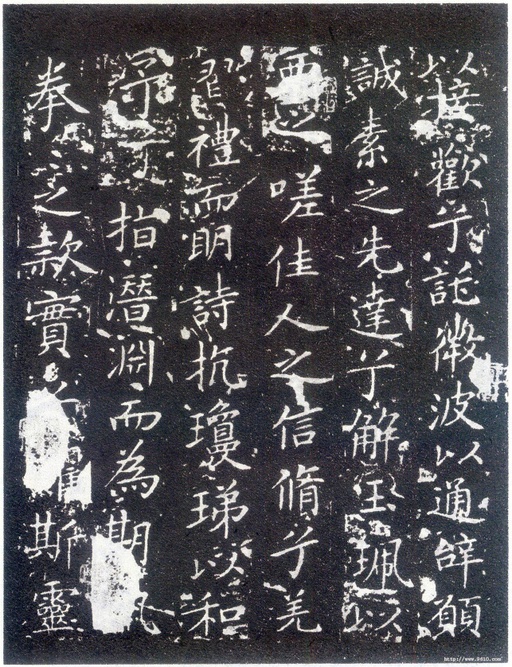 以接歡兮託微波以通辭願
誠素之先達兮解玉珮以
要之嗟佳人之信脩兮羌
習禮而明詩抗瓊珶以和
予兮指潛淵而為期
拳之款實兮懼斯靈
http://www.9610.com